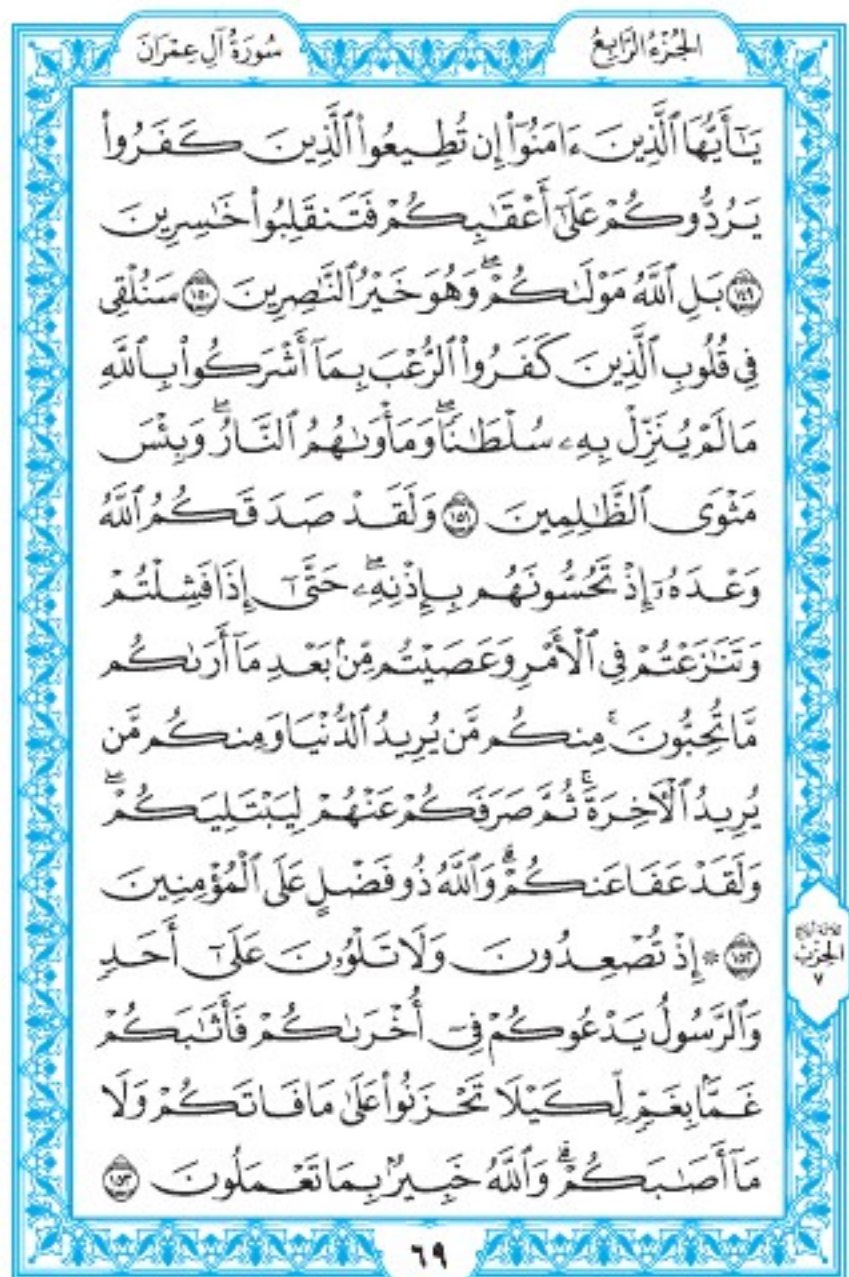 الجُزْءُ الرَّابِعُ
سُورَةُ آلِ عِمْرَانَ
يَـٰٓأَيُّهَا ٱلَّذِينَ ءَامَنُوٓا۟ إِن تُطِيعُوا۟ ٱلَّذِينَ كَفَرُوا۟
يَرُدُّوكُمْ عَلَىٰٓ أَعْقَـٰبِكُمْ فَتَنقَلِبُوا۟ خَـٰسِرِينَ
١٤٩ بَلِ ٱللَّهُ مَوْلَىٰكُمْ ۖ وَهُوَ خَيْرُ ٱلنَّـٰصِرِينَ ١٥٠ سَنُلْقِى
فِى قُلُوبِ ٱلَّذِينَ كَفَرُوا۟ ٱلرُّعْبَ بِمَآ أَشْرَكُوا۟ بِٱللَّهِ
مَا لَمْ يُنَزِّلْ بِهِۦ سُلْطَـٰنًا ۖ وَمَأْوَىٰهُمُ ٱلنَّارُ ۖ وَبِئْسَ
مَثْوَى ٱلظَّـٰلِمِينَ ١٥١ وَلَقَدْ صَدَقَكُمُ ٱللَّهُ
وَعْدَهُۥٓ إِذْ تَحُسُّونَهُم بِإِذْنِهِۦ ۖ حَتَّىٰٓ إِذَا فَشِلْتُمْ
وَتَنَـٰزَعْتُمْ فِى ٱلْأَمْرِ وَعَصَيْتُم مِّنۢ بَعْدِ مَآ أَرَىٰكُم
مَّا تُحِبُّونَ ۚ مِنكُم مَّن يُرِيدُ ٱلدُّنْيَا وَمِنكُم مَّن
يُرِيدُ ٱلْـَٔاخِرَةَ ۚ ثُمَّ صَرَفَكُمْ عَنْهُمْ لِيَبْتَلِيَكُمْ ۖ
وَلَقَدْ عَفَا عَنكُمْ ۗ وَٱللَّهُ ذُو فَضْلٍ عَلَى ٱلْمُؤْمِنِينَ
١٥٢ * إِذْ تُصْعِدُونَ وَلَا تَلْوُۥنَ عَلَىٰٓ أَحَدٍ
وَٱلرَّسُولُ يَدْعُوكُمْ فِىٓ أُخْرَىٰكُمْ فَأَثَـٰبَكُمْ
غَمًّۢا بِغَمٍّ لِّكَيْلَا تَحْزَنُوا۟ عَلَىٰ مَا فَاتَكُمْ وَلَا
مَآ أَصَـٰبَكُمْ ۗ وَٱللَّهُ خَبِيرٌۢ بِمَا تَعْمَلُونَ ١٥٣
الحِزْب
٧
٦٩